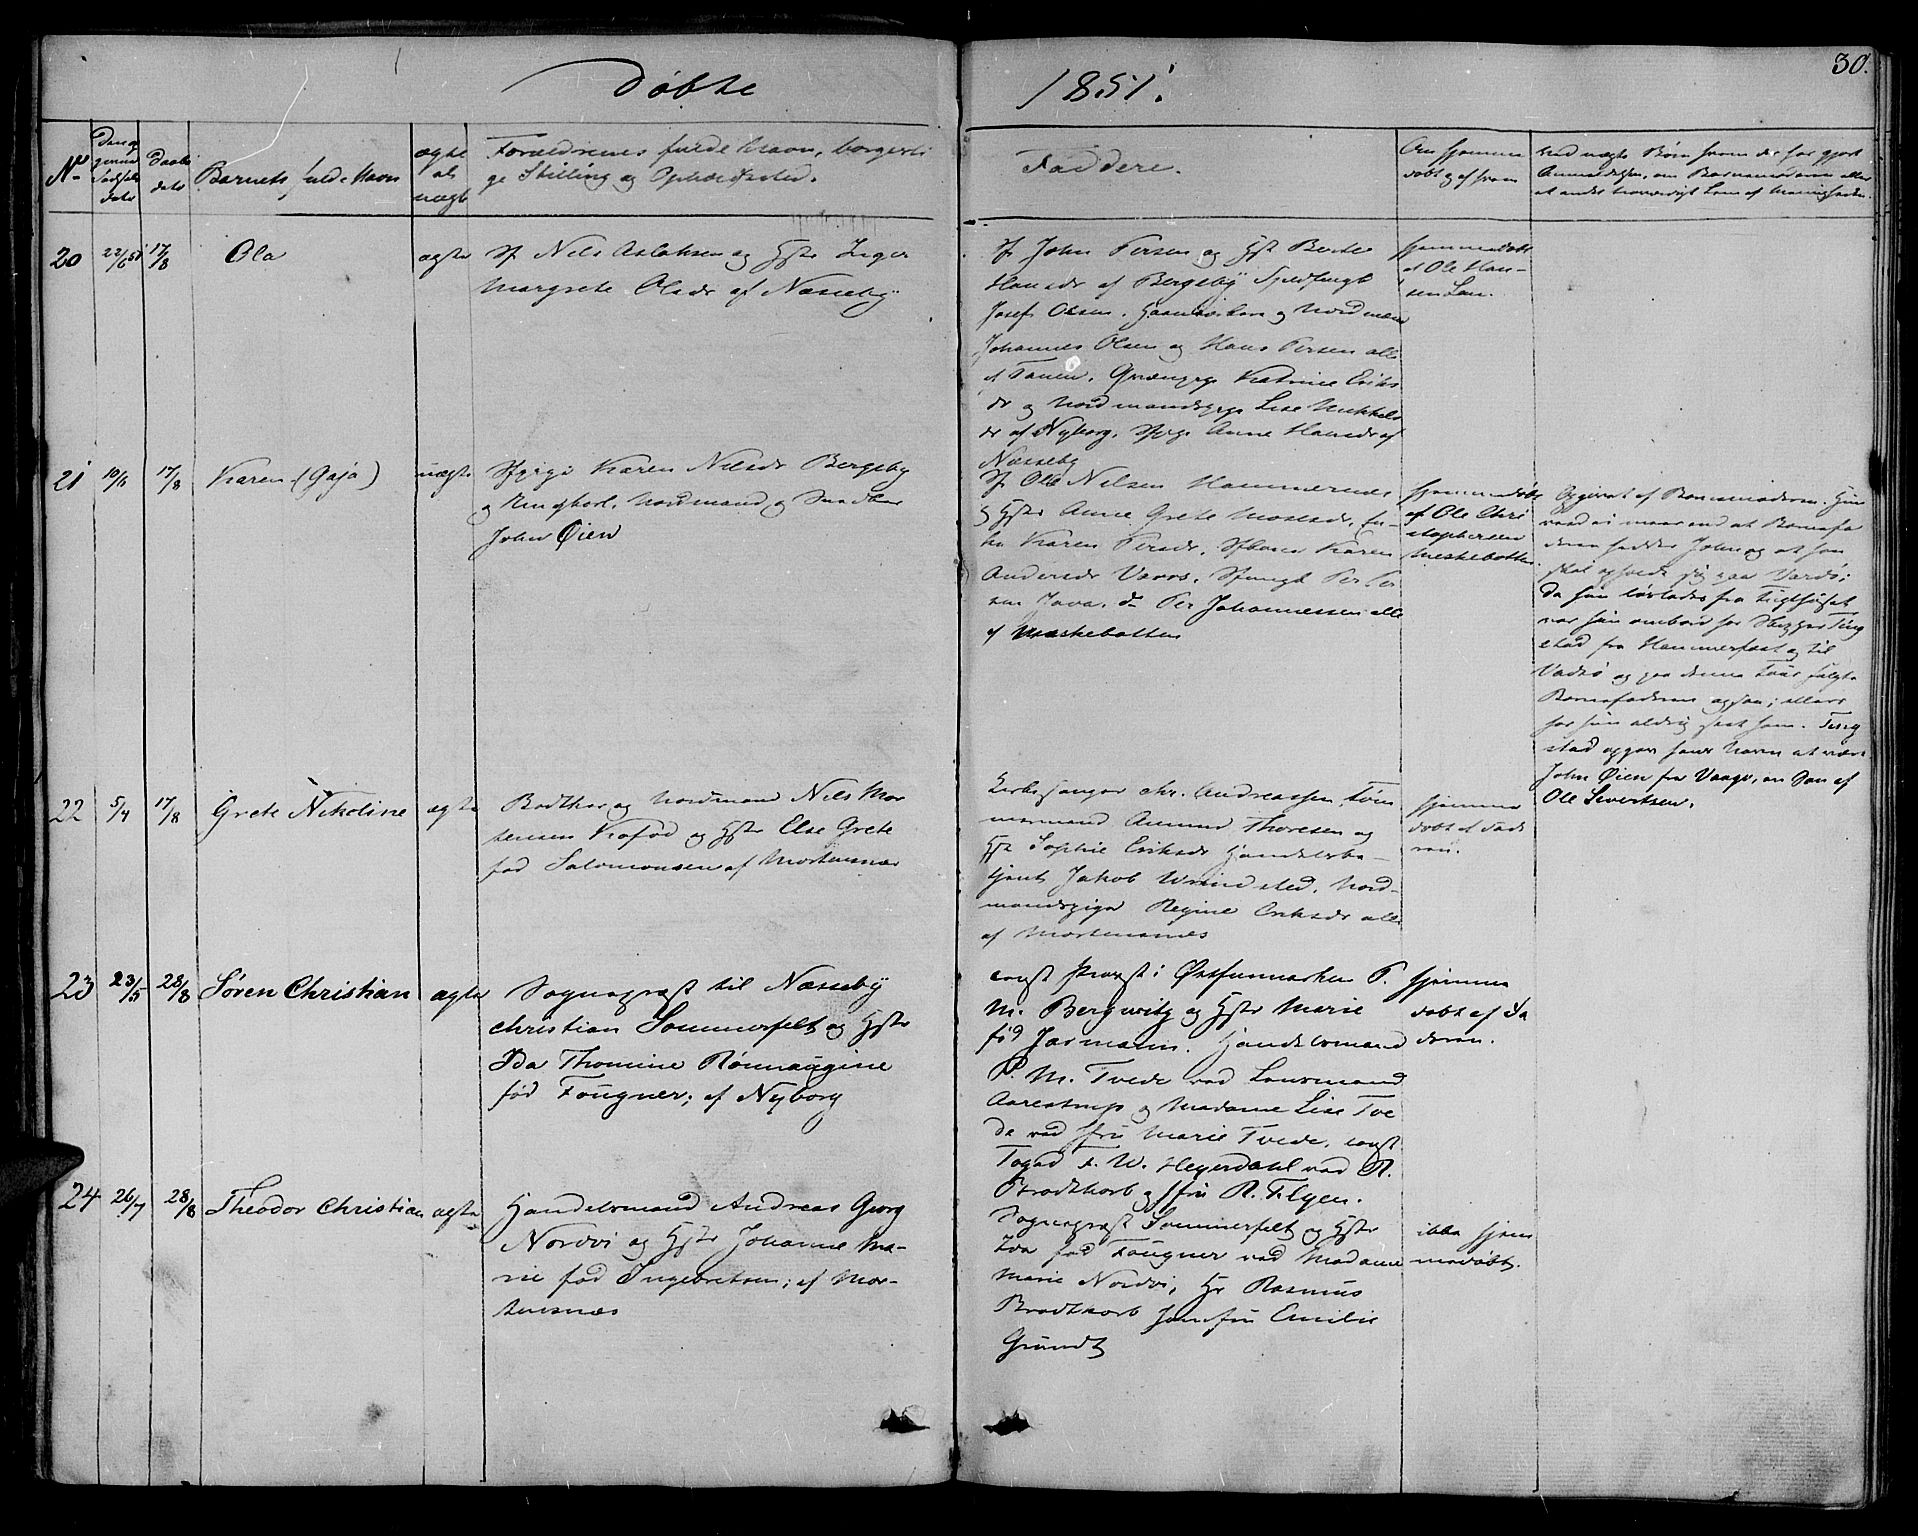 Døbte
1851.
30.
No
Daabs
dato
Barnets fulde Navn
ægte
el.
uægte
Forældrenes fulde Navn, borgerli
ge Stilling og Opholdssted.
Faddere.
Om hjemme
døbt og af hvem
20
22/6 50
17/8
Ola
ægte
Sf. Nils Aslaksen og Hstr Inger
Margrete Olsdr af Næsseby
Sf John Persen og Hst Berte
Hansdr af Bergeby
Josef Olsen, og Nordmænd
Johannes Olsen og Hans Persen alle
af Tanen, Qvænpige Katrine Eriks
dr og Nordmandspige Lise Mikkels
dr af Nyborg, Sfpige Anne Hansdr af
Næsseby
hjemmedøbt
af Ole Han-
sen
21
10/6
17/8
Karen (Gaja)
uægte
Sfpige Karen Nilsdr Bergeby
og Ungkarl, Nordmand og
John Øien
Sf Ole Nilsen Hammernes
og Hstr Anne Grete Mosesdr, En-
ke Karen Persdr, Karen
Andersdr Varres, Per Per
sen Java, do Per Johannessen alle
af Meskebotten
hjemmedøbt
af Ole Chri
stophersen
Meskebotten
Opgivet af Barnmoderen. Hun
veed ei mere end at Barnefa
deren hedder John og at han
skal opholde sig paa Vardø;
da hun løslades fra Tugthuset
var hun ombord hos Skipper Ting
stad fra Hammerfest og til
Vadsø og paa denne Tour fulgte
Barnefaderen ogsaa; ellers
har hun aldrig seet ham. Ting
stad opgav hans Navn at være
John Øien fra Vaage, en Søn af
Ole Sivertsen.
22
5/4
17/8
Grete Nikoline
ægte
og Nordmand Nils Mor
tensen Kofod og Hstr Else Grete
fød Salomonsen af Mortensnæs
Kirkesanger Chr. Andreassen, Tøm
mermand Amund Thoresen og
Hst Sophie Eriksdr Handelsbe-
tjent Jakob, Nord-
mandspige Regine Eriksdr alle
af Mortensnes
hjemme
døbt af Fade
ren.
23
23/5
28/8
Søren Christian
ægte
Sogneprest til Næsseby
Christian Sommerfelt og Hstr
Ida Thomine Rønnaugine
fød Fougner; af Nyborg
const Provst i Østfinmarken P.
M. Bergwitz og Hstr Marie
fød Jarmann. Handelsmand
P. M. Tvede ved Lensmand
Aarestrup og Madame Lise Tve
de ved Jfru Marie Tvede, const
Foged F. W. Heyerdahl ved R.
Brodtkorb og Jfru R. Flyen.
hjemme
døbt af Fa
deren.
24
26/7
28/8
Theodor Christian
ægte
Handelsmand Andreas Georg
Nordvi og Hstr Johanne Ma-
rie fød Ingebretsen; af Mor-
tensnæs
Sogneprest Sommerfelt og Hstr
Ida fød Fougner ved Madame
Marie Nordvi, Hr Rasmus
Brodtkorb Jomfru Emilie
Grundt
ikke hjem
medøbt.